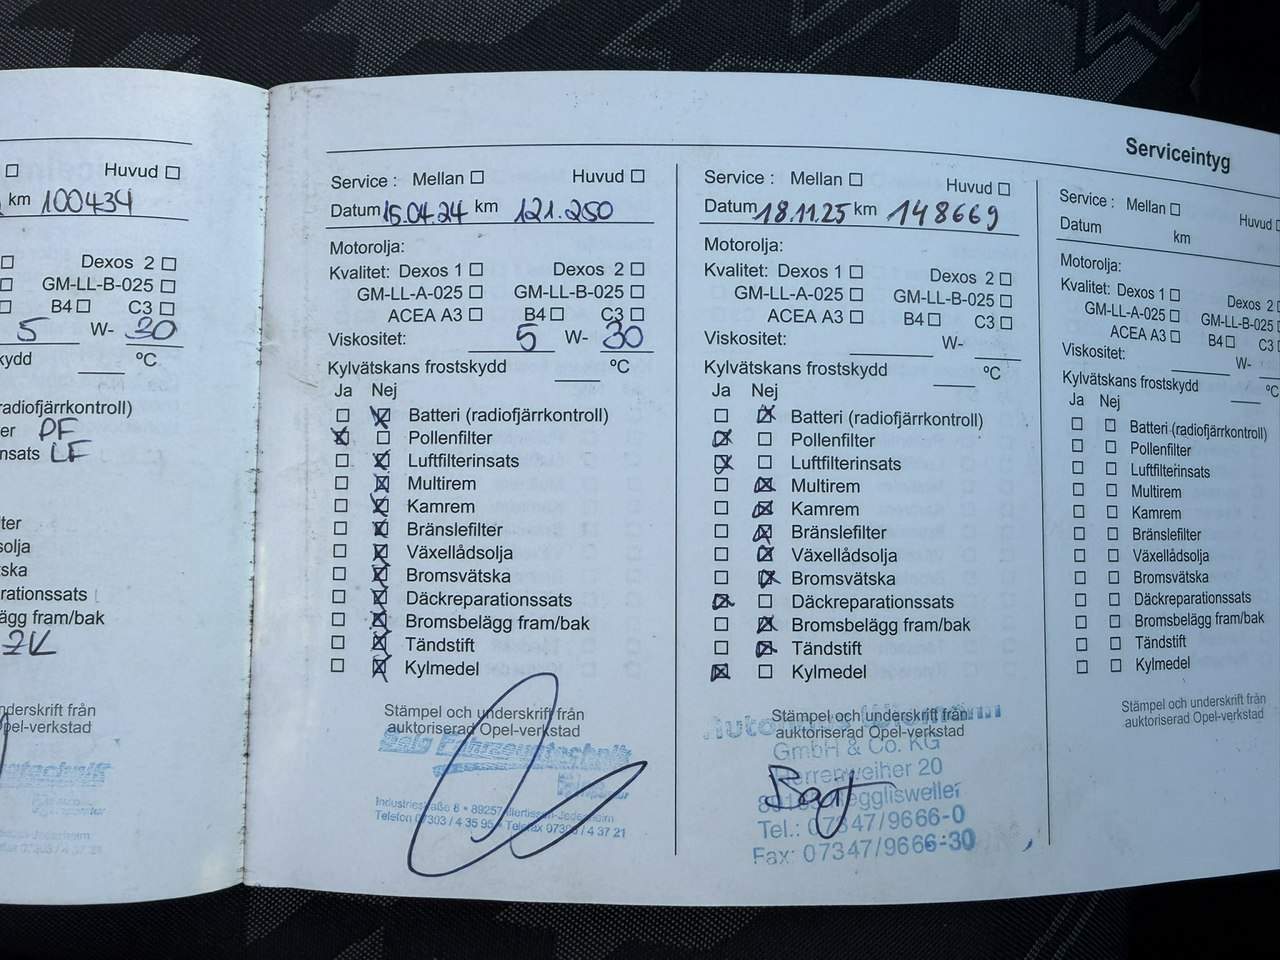 Serviceintyg
Huvud
km 100434
Dexos 2
GM-LL-B-025
B4 C3
5 W- 30
kydd ºC
radiofjärrkontroll)
er PF
nsats LF
ter
solja
tska
rationssats
ägg fram/bak
ZK
nderskrift från
Opel-verkstad
Service : Mellan Huvud
Datum 15.04.24 km 121.250
Motorolja:
Kvalitet: Dexos 1 Dexos 2
GM-LL-A-025 GM-LL-B-025
ACEA A3 B4 C3
Viskositet: 5 W- 30
Kylvätskans frostskydd ºC
Ja Nej
Batteri (radiofjärrkontroll)
Pollenfilter
Luftfilterinsats
Multirem
Kamrem
Bränslefilter
Växellådsolja
Bromsvätska
Däckreparationssats
Bromsbelägg fram/bak
Tändstift
Kylmedel
Stämpel och underskrift från
auktoriserad Opel-verkstad
Fahrzeugtechnik
Industriestraße 6 • 89257 Illertissen-Jedesheim
Telefon 07303 / 4 35 95 • Telefax 07303 / 4 37 21
Service : Mellan Huvud
Datum 18.11.25 km 148669
Motorolja:
Kvalitet: Dexos 1 Dexos 2
GM-LL-A-025 GM-LL-B-025
ACEA A3 B4 C3
Viskositet: W-
Kylvätskans frostskydd ºC
Ja Nej
Batteri (radiofjärrkontroll)
Pollenfilter
Luftfilterinsats
Multirem
Kamrem
Bränslefilter
Växellådsolja
Bromsvätska
Däckreparationssats
Bromsbelägg fram/bak
Tändstift
Kylmedel
Stämpel och underskrift från
auktoriserad Opel-verkstad
GmbH & Co. KG
Herrenweiher 20
Regglisweiler
Tel.: 07347/9666-0
Fax: 07347/9666-30
Service : Mellan Huvud
Datum km
Motorolja:
Kvalitet: Dexos 1 Dexos 2
GM-LL-A-025 GM-LL-B-025
ACEA A3 B4 C3
Viskositet: W-
Kylvätskans frostskydd ºC
Ja Nej
Batteri (radiofjärrkontroll)
Pollenfilter
Luftfilterinsats
Multirem
Kamrem
Bränslefilter
Växellådsolja
Bromsvätska
Däckreparationssats
Bromsbelägg fram/bak
Tändstift
Kylmedel
Stämpel och underskrift från
auktoriserad Opel-verkstad